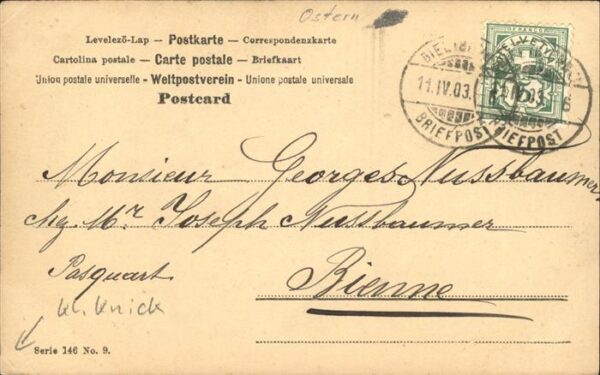 Ostern
Levelező-Lap — Postkarte — Correspondenzkarte
Cartolina postale — Carte postale — Briefkaart
Union postale universelle — Weltpostverein — Unione postale universale
Postcard
FRANCO
HELVETIA
5
BIEL
11.IV.03.
BRIEFPOST
11.IV.03. 6
BRIEFPOST
Monsieur Georges Nussbaumer
chez Mr Joseph Nussbaumer
Pasquart
Bienne
kl. Knick
Serie 146 No. 9.